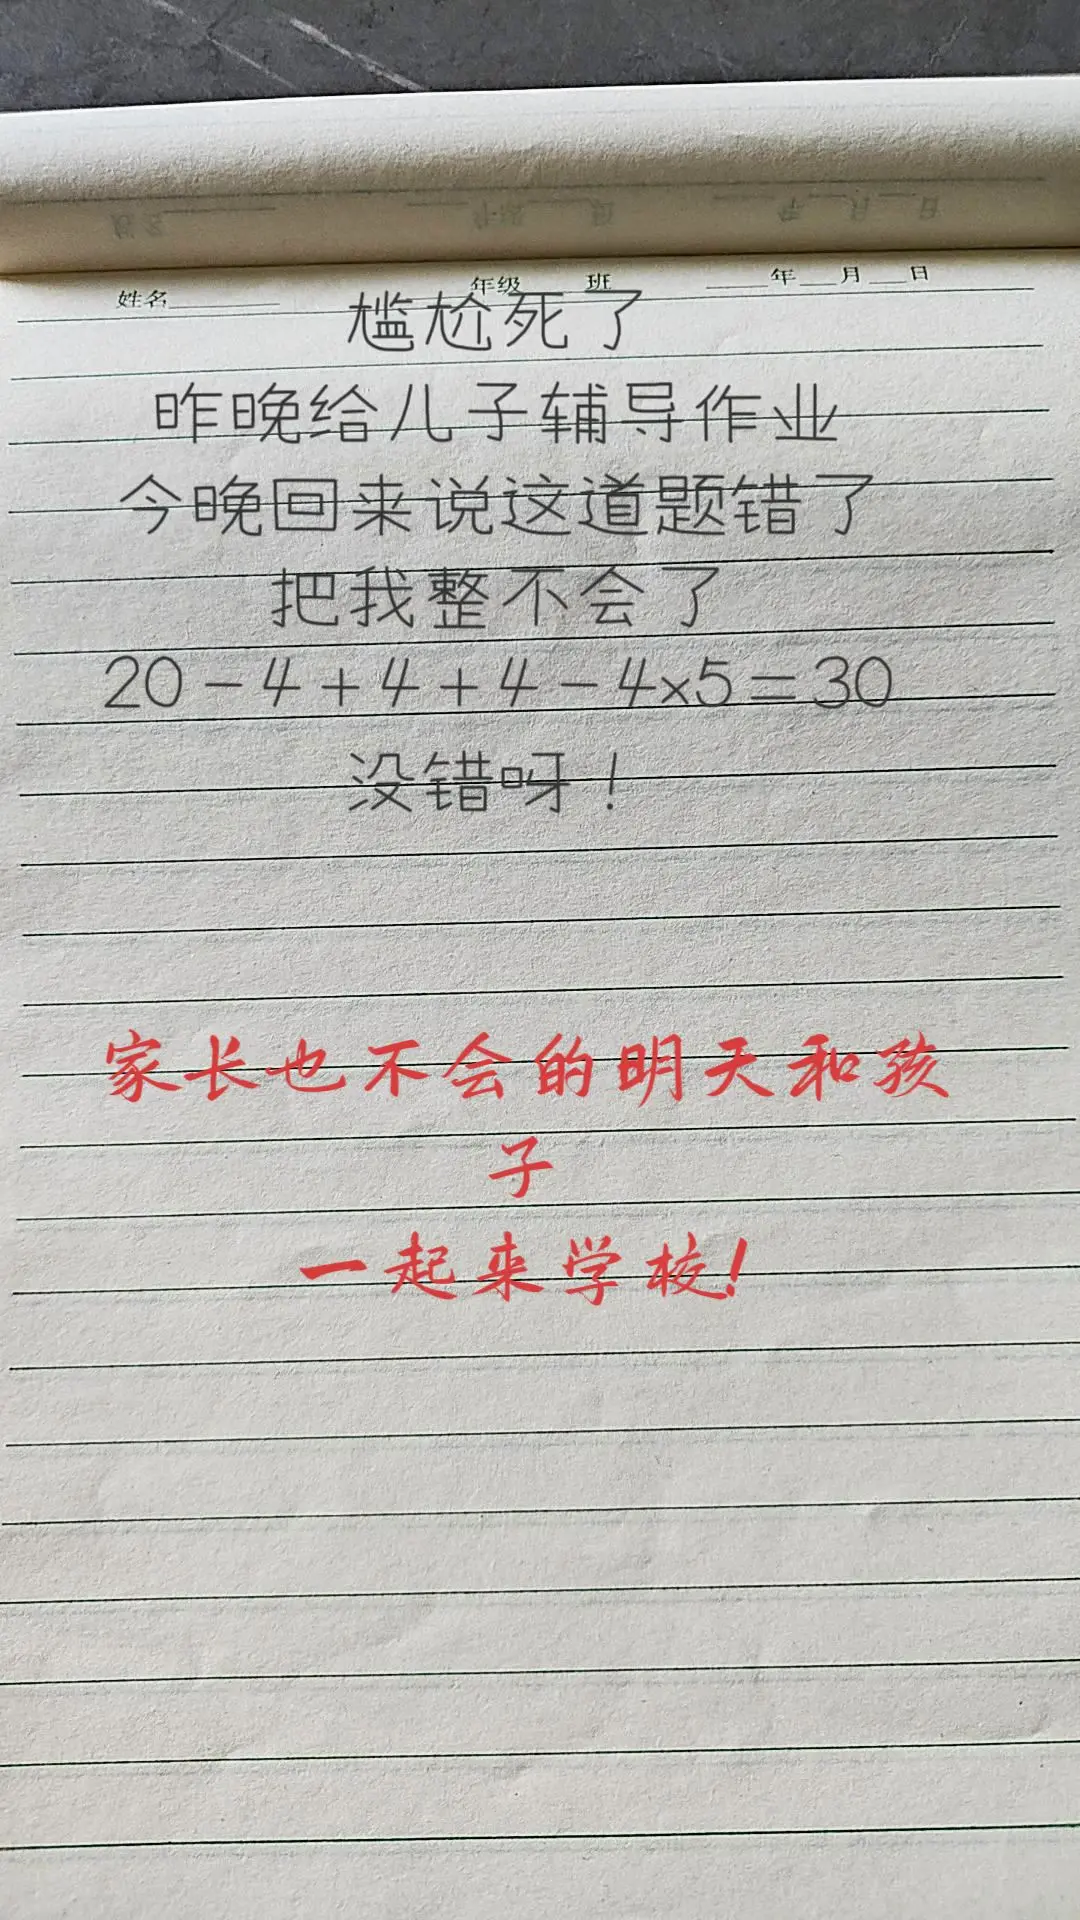 姓名 年级 班 年 月 日
尴尬死了
昨晚给儿子辅导作业
今晚回来说这道题错了
把我整不会了
20-4+4+4-4×5=30
没错呀！
家长也不会的明天和孩
子
一起来学校！